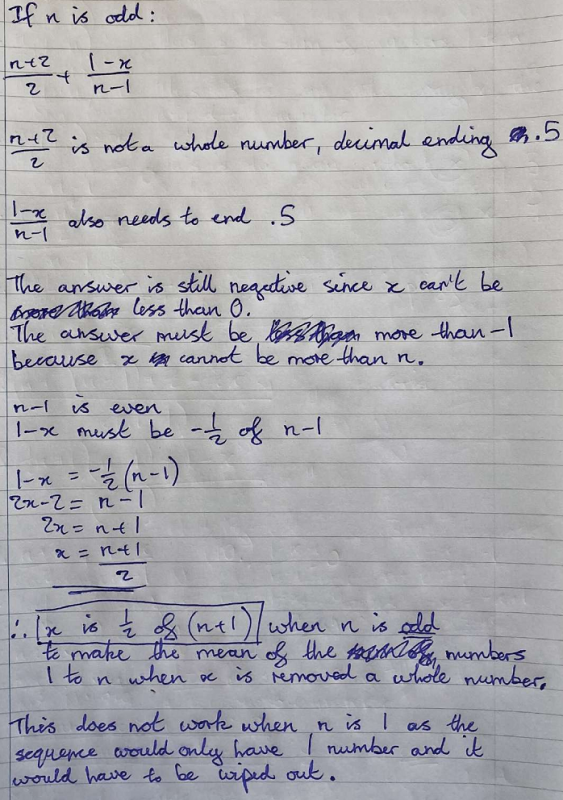 If n is odd:
n+2/2 + 1-x/n-1
n+2/2 is not a whole number, decimal ending .5
1-x/n-1 also needs to end .5
The answer is still negative since x can't be
less than 0.
The answer must be more than -1
because x cannot be more than n.
n-1 is even
1-x must be -1/2 of n-1
1-x = -1/2(n-1)
2x-2 = n-1
2x = n+1
x = n+1/2
∴ x is 1/2 of (n+1) when n is odd
to make the mean of the numbers
1 to n when x is removed a whole number.
This does not work when n is 1 as the
sequence would only have 1 number and it
would have to be wiped out.